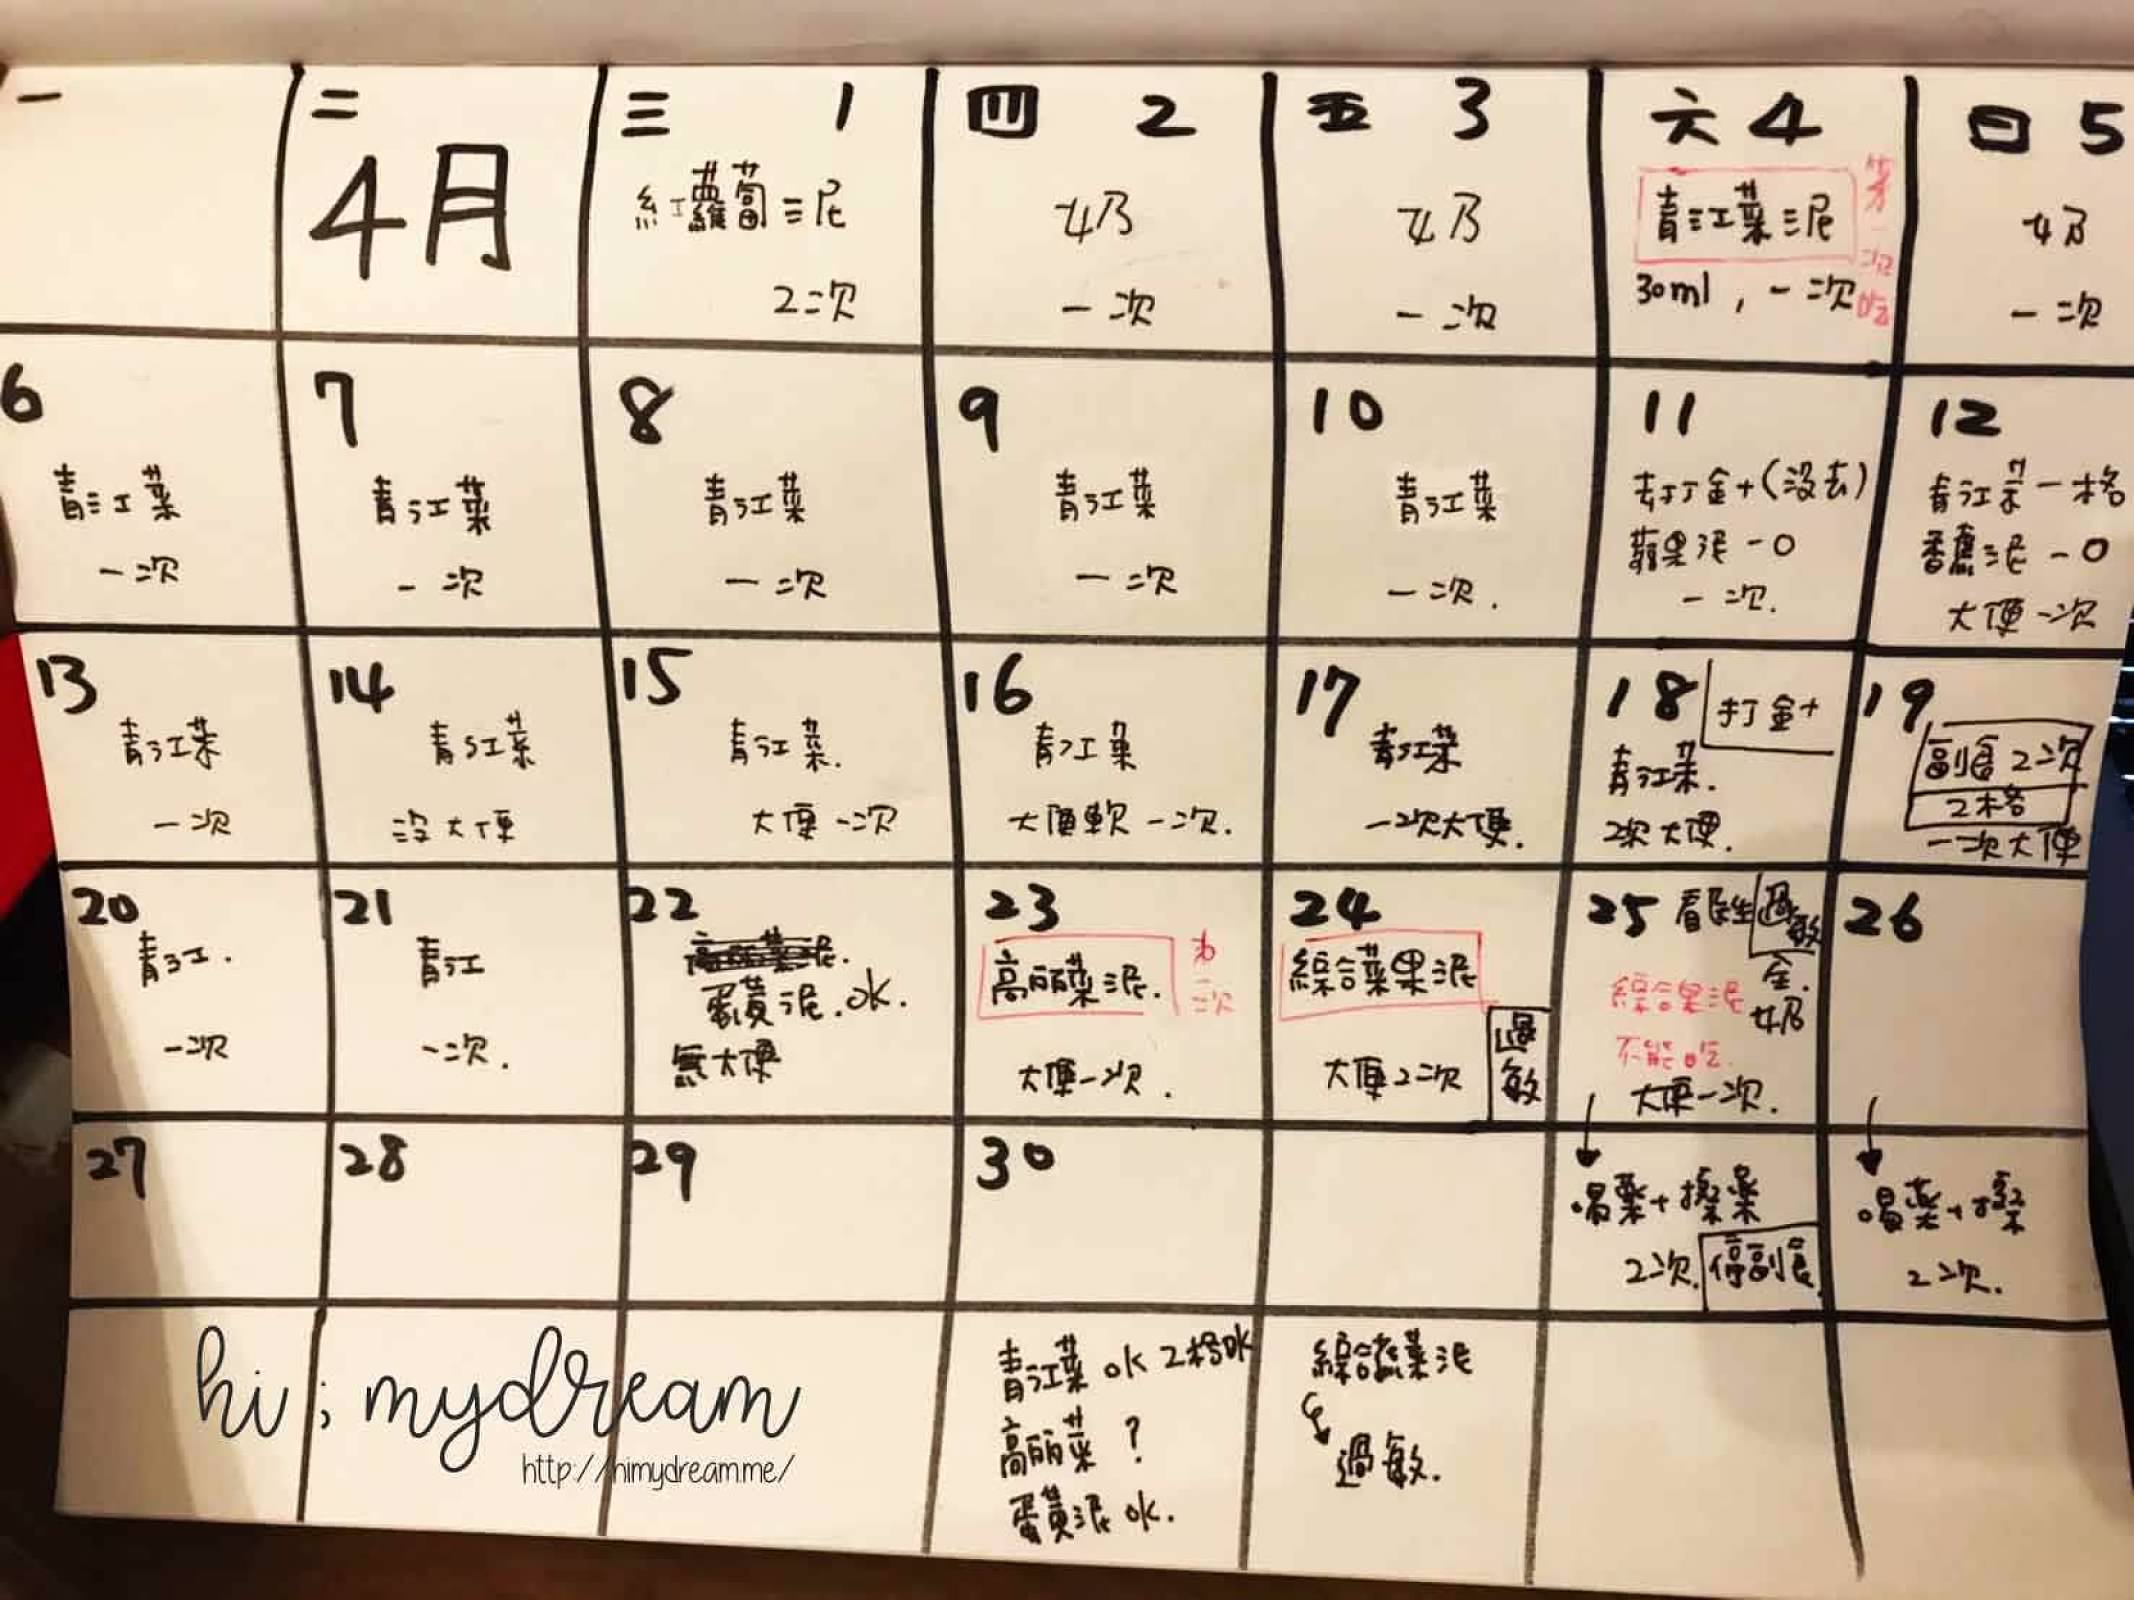 一
二
4月
三 1
紅蘿蔔泥
2次
四 2
奶
一次
五 3
奶
一次
六 4
青江菜泥
30ml，一次
第一次吃
日 5
奶
一次
6
青江菜
一次
7
青江菜
一次
8
青江菜
一次
9
青江菜
一次
10
青江菜
一次.
11
去打針(沒去)
蘋果泥一口
一次.
12
青江菜一格
香蕉泥一口
大便一次
13
青江菜
一次
14
青江菜
沒大便
15
青江菜.
大便一次
16
青江菜
大便軟一次.
17
青江菜
一次大便.
18 打針
青江菜.
2次大便.
19
副食2次
2格
一次大便
20
青江.
一次
21
青江
一次.
22
高麗菜泥.
蛋黃泥.ok.
無大便
23
高丽菜泥.
第一次
大便一次.
24
綜合菜果泥
大便2次
過敏
25 看医生 過敏
全.奶
綜合果泥
不能吃.
大便一次.
26
27
28
29
30
喝藥+擦藥
2次. 停副食
喝藥+擦
2次.
青江菜 ok 2格ok
高丽菜 ?
蛋黃泥 ok.
綜合蔬菜泥
過敏.
hi ; mydream
http://himydream.me/